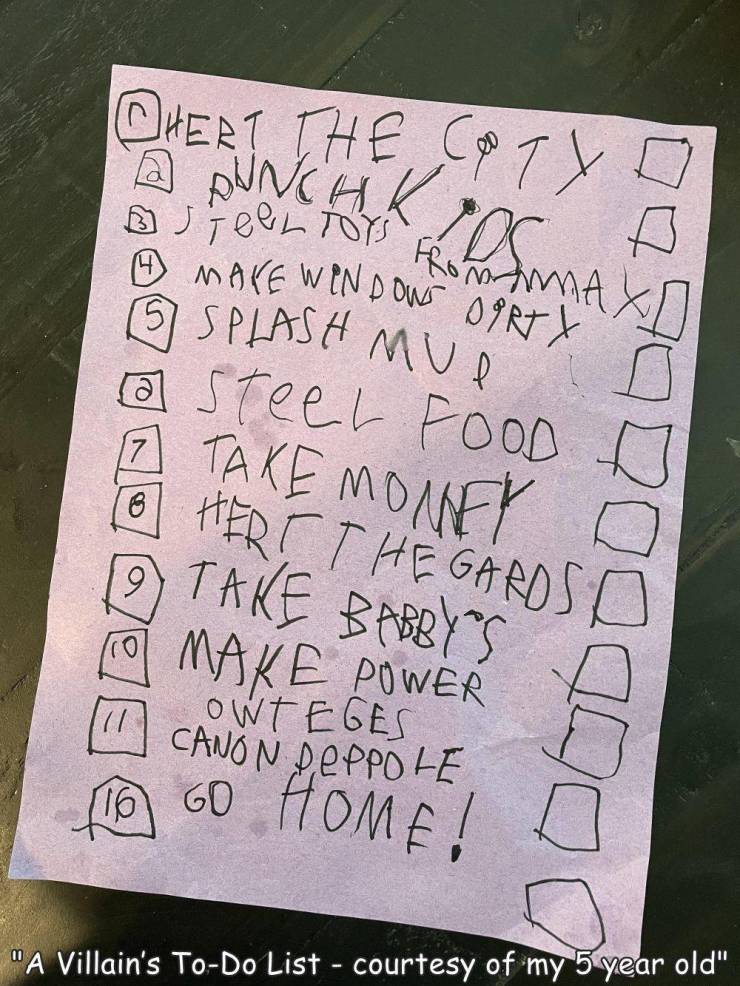 1 HERT THE CITY
2 PUNCH KIDS
3 STEEL TOYS FROM MAX
4 MAKE WINDOWS DIRTY
5 SPLASH MUD
STEEL FOOD
7 TAKE MONNEY
8 HERT THE GARDS
9 TAKE BABBY'S
10 MAKE POWER
OWTEGES
11 CANON PEPPOLE
16 GO HOME!
"A Villain's To-Do List - courtesy of my 5 year old"